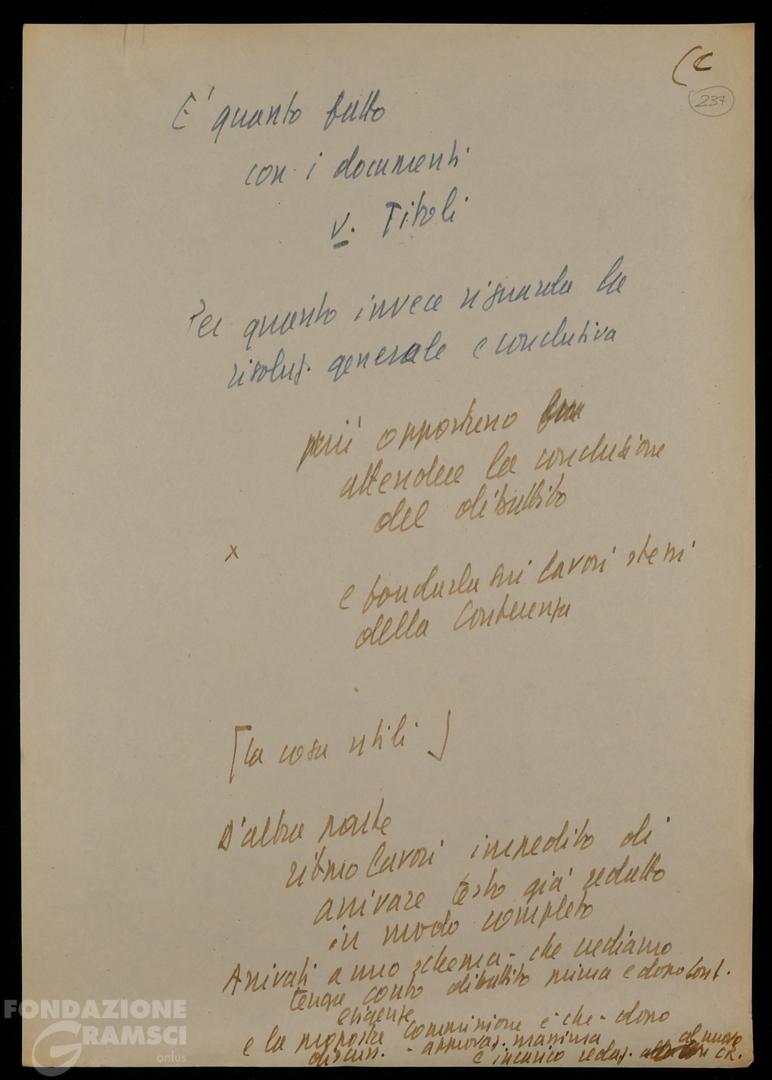 (C
237
E' quanto fatto
con i documenti
v. Titoli
Per quanto invece riguarda la
risoluz. generale e conclusiva
più opportuno
attendere la conclusione
del dibattito
x
e fondarla sui lavori stessi
della Conferenza
[la cosa utili]
D'altra parte
ritmo lavori impedito di
arrivare testo già redatto
in modo completo
Arrivati a uno schema - che crediamo
tenga conto dibattito prima e dopo Conf.
esigenze
e la proposta commissione è che - dopo
discuss. - approvaz. massima
e incarico redaz. al nuovo
CC.
FONDAZIONE
GRAMSCI
onlus